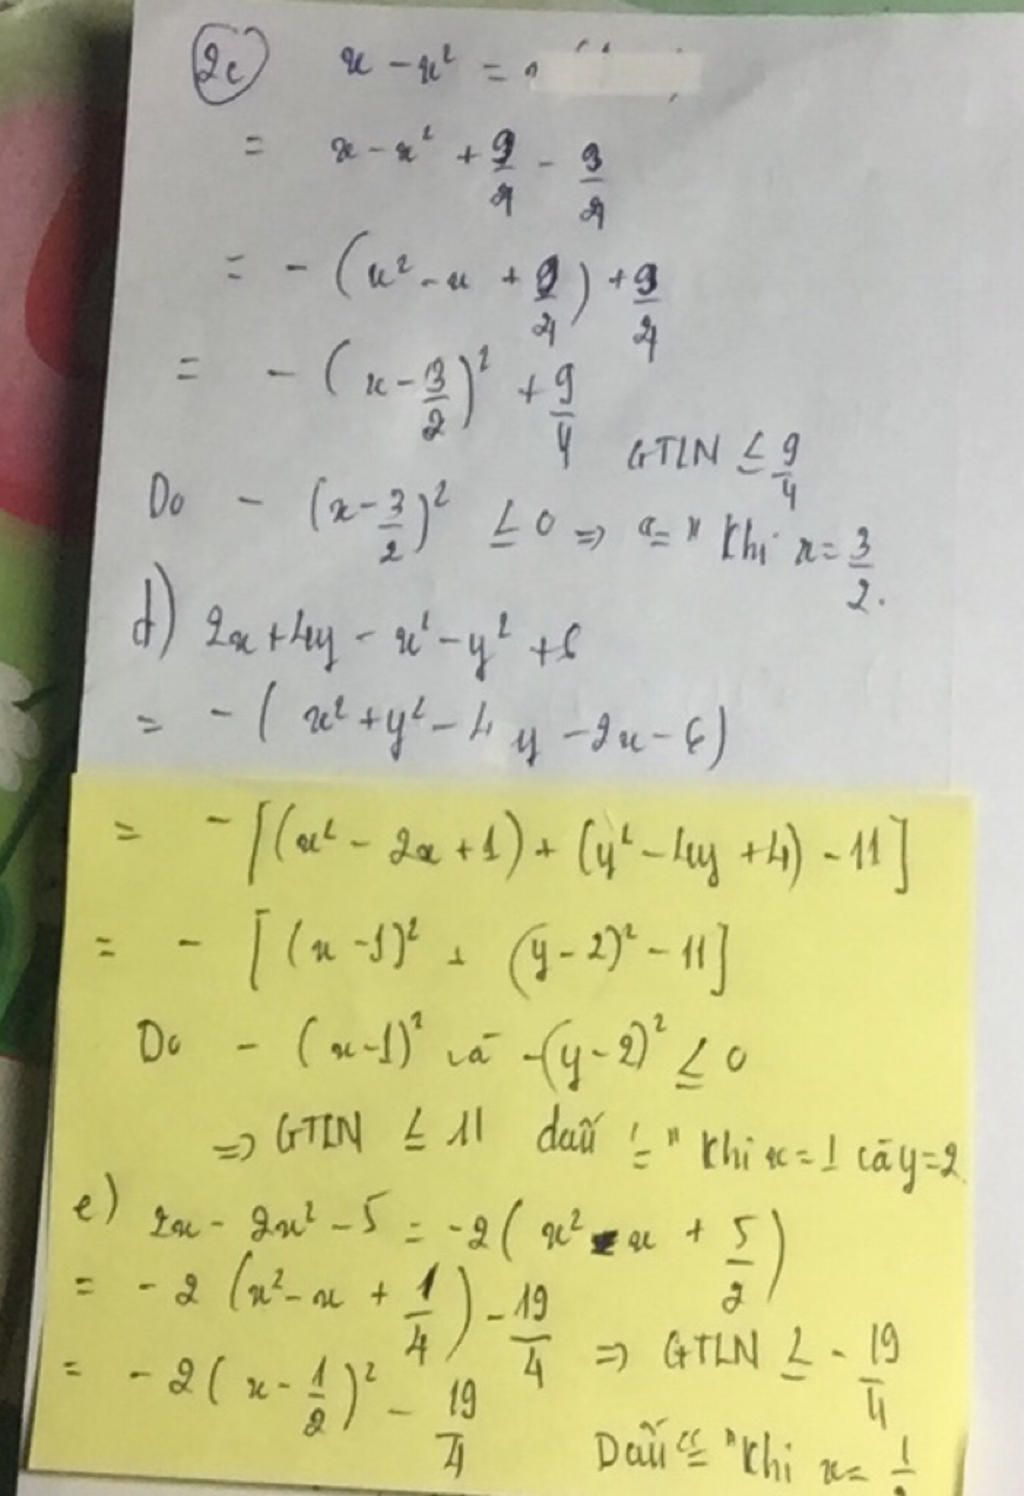 2c x - x² =
= x - x² + 9/4 - 9/4
= - (x² - x + 9/4) + 9/4
= - (x - 3/2)² + 9/4
GTLN ≤ 9/4
Do - (x - 3/2)² ≤ 0 => "=" Khi x = 3/2.
d) 2x + 4y - x² - y² + 6
= - (x² + y² - 4y - 2x - 6)
= - [(x² - 2x + 1) + (y² - 4y + 4) - 11]
= - [(x - 1)² + (y - 2)² - 11]
Do - (x - 1)² và - (y - 2)² ≤ 0
=> GTLN ≤ 11 dấu "=" Khi x = 1 và y = 2
e) 2x - 2x² - 5 = -2(x² - x + 5/2)
= -2(x² - x + 1/4) - 19/4 => GTLN ≤ - 19/4
= -2(x - 1/2)² - 19/4
Dấu "=" Khi x = 1/2